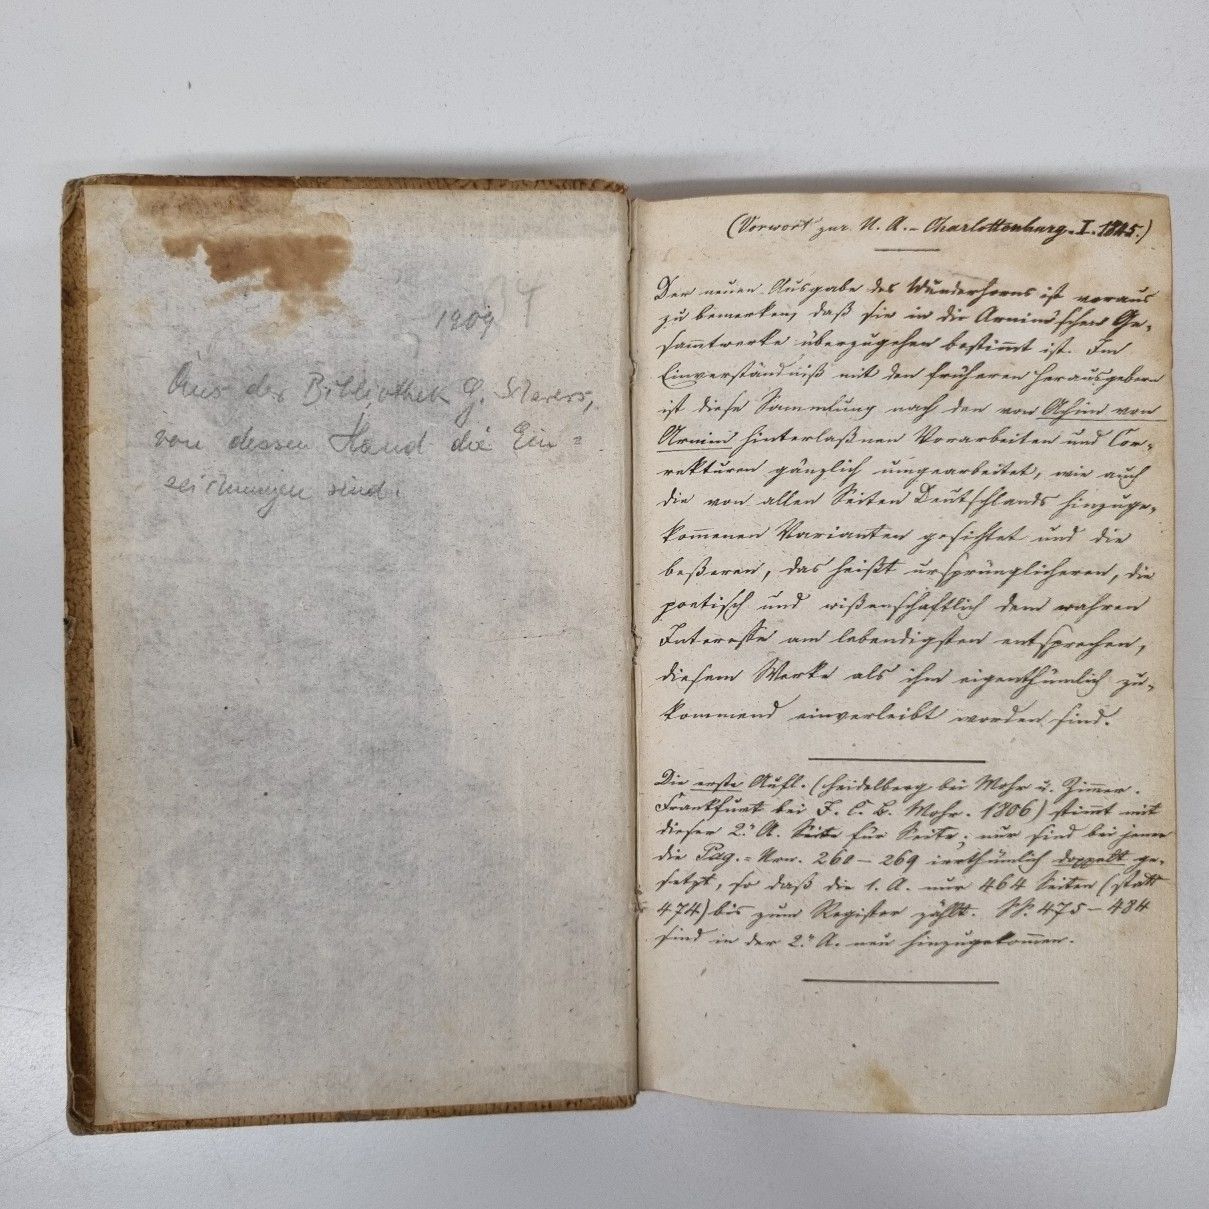 1909
Aus der Bibliothek G.
von dessen Hand die Ein-
zeichnungen sind.
(Vorwort zur N. A. – Charlottenburg. I. 1845.)
Der neuen Ausgabe des Wunderhorns ist voraus
zu bemerken, daß sie in die Arnim'schen Ge-
sammtwerke überzugehen bestimmt ist. Im
Einverständniß mit den früheren Herausgebern
ist diese Sammlung nach den von Achim von
Arnim hinterlaßnen Vorarbeiten und Cor-
rekturen gänzlich umgearbeitet, wie auch
die von allen Seiten Deutschlands hinzuge-
kom̄enen Varianten gesichtet und die
beßeren, das heißt ursprünglicheren, die
poetisch und wißenschaftlich dem wahren
Interesse am lebendigsten entsprechen,
diesem Werke als ihm eigenthümlich zu-
kommend einverleibt worden sind.
Die erste Aufl. (Heidelberg bei Mohr u. Zimmer.
Frankfurt bei J. C. B. Mohr. 1806) stimmt mit
dieser 2. A. Seite für Seite; nur sind bei jener
die Pag.-Nrn. 260–269 irrthümlich doppelt ge-
setzt, so daß die 1. A. nur 464 Seiten (statt
474) bis zum Register zählt. SS. 475–484
sind in der 2. A. neu hinzugekom̄en.